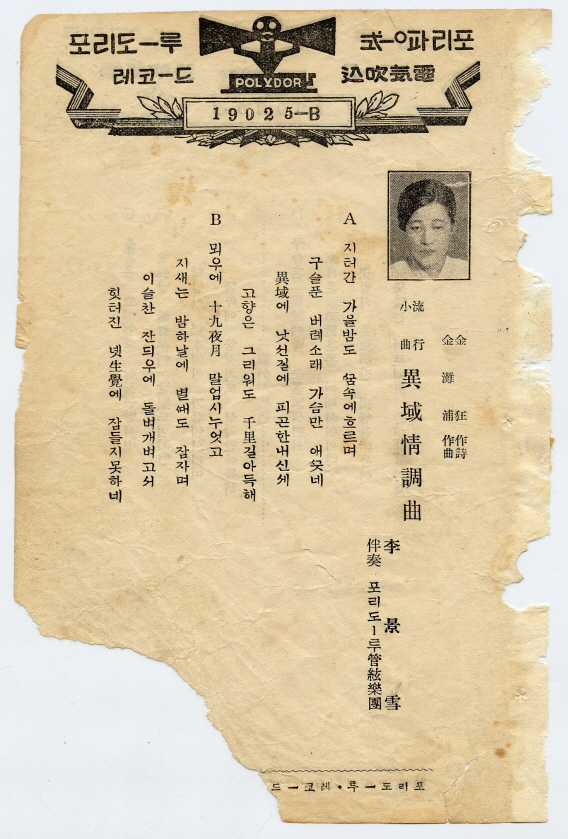 포리도ー루
레코ー드
電氣吹込
POLYDOR
19025-B
金狂作詩
金灘浦作曲
流行小曲 異域情調曲
李景雪
伴奏 포리도ー루管絃樂團
A 지터간 가을밤도 ᄭᅮᆷ속에흐르며
구슬푼 버레소래 가슴만 애ᄭᅳᆺ네
異域에 낫선길에 피곤한내신세
고향은 그리워도 千里길아득해
B 뫼우에 十九夜月 말업시누엇고
지새는 밤하날에 별ᄯᅢ도 잠자며
이슬찬 잔듸우에 돌벼개벼고서
힛터진 녯生覺에 잠들지못하네
포리도ー루・레코ー드